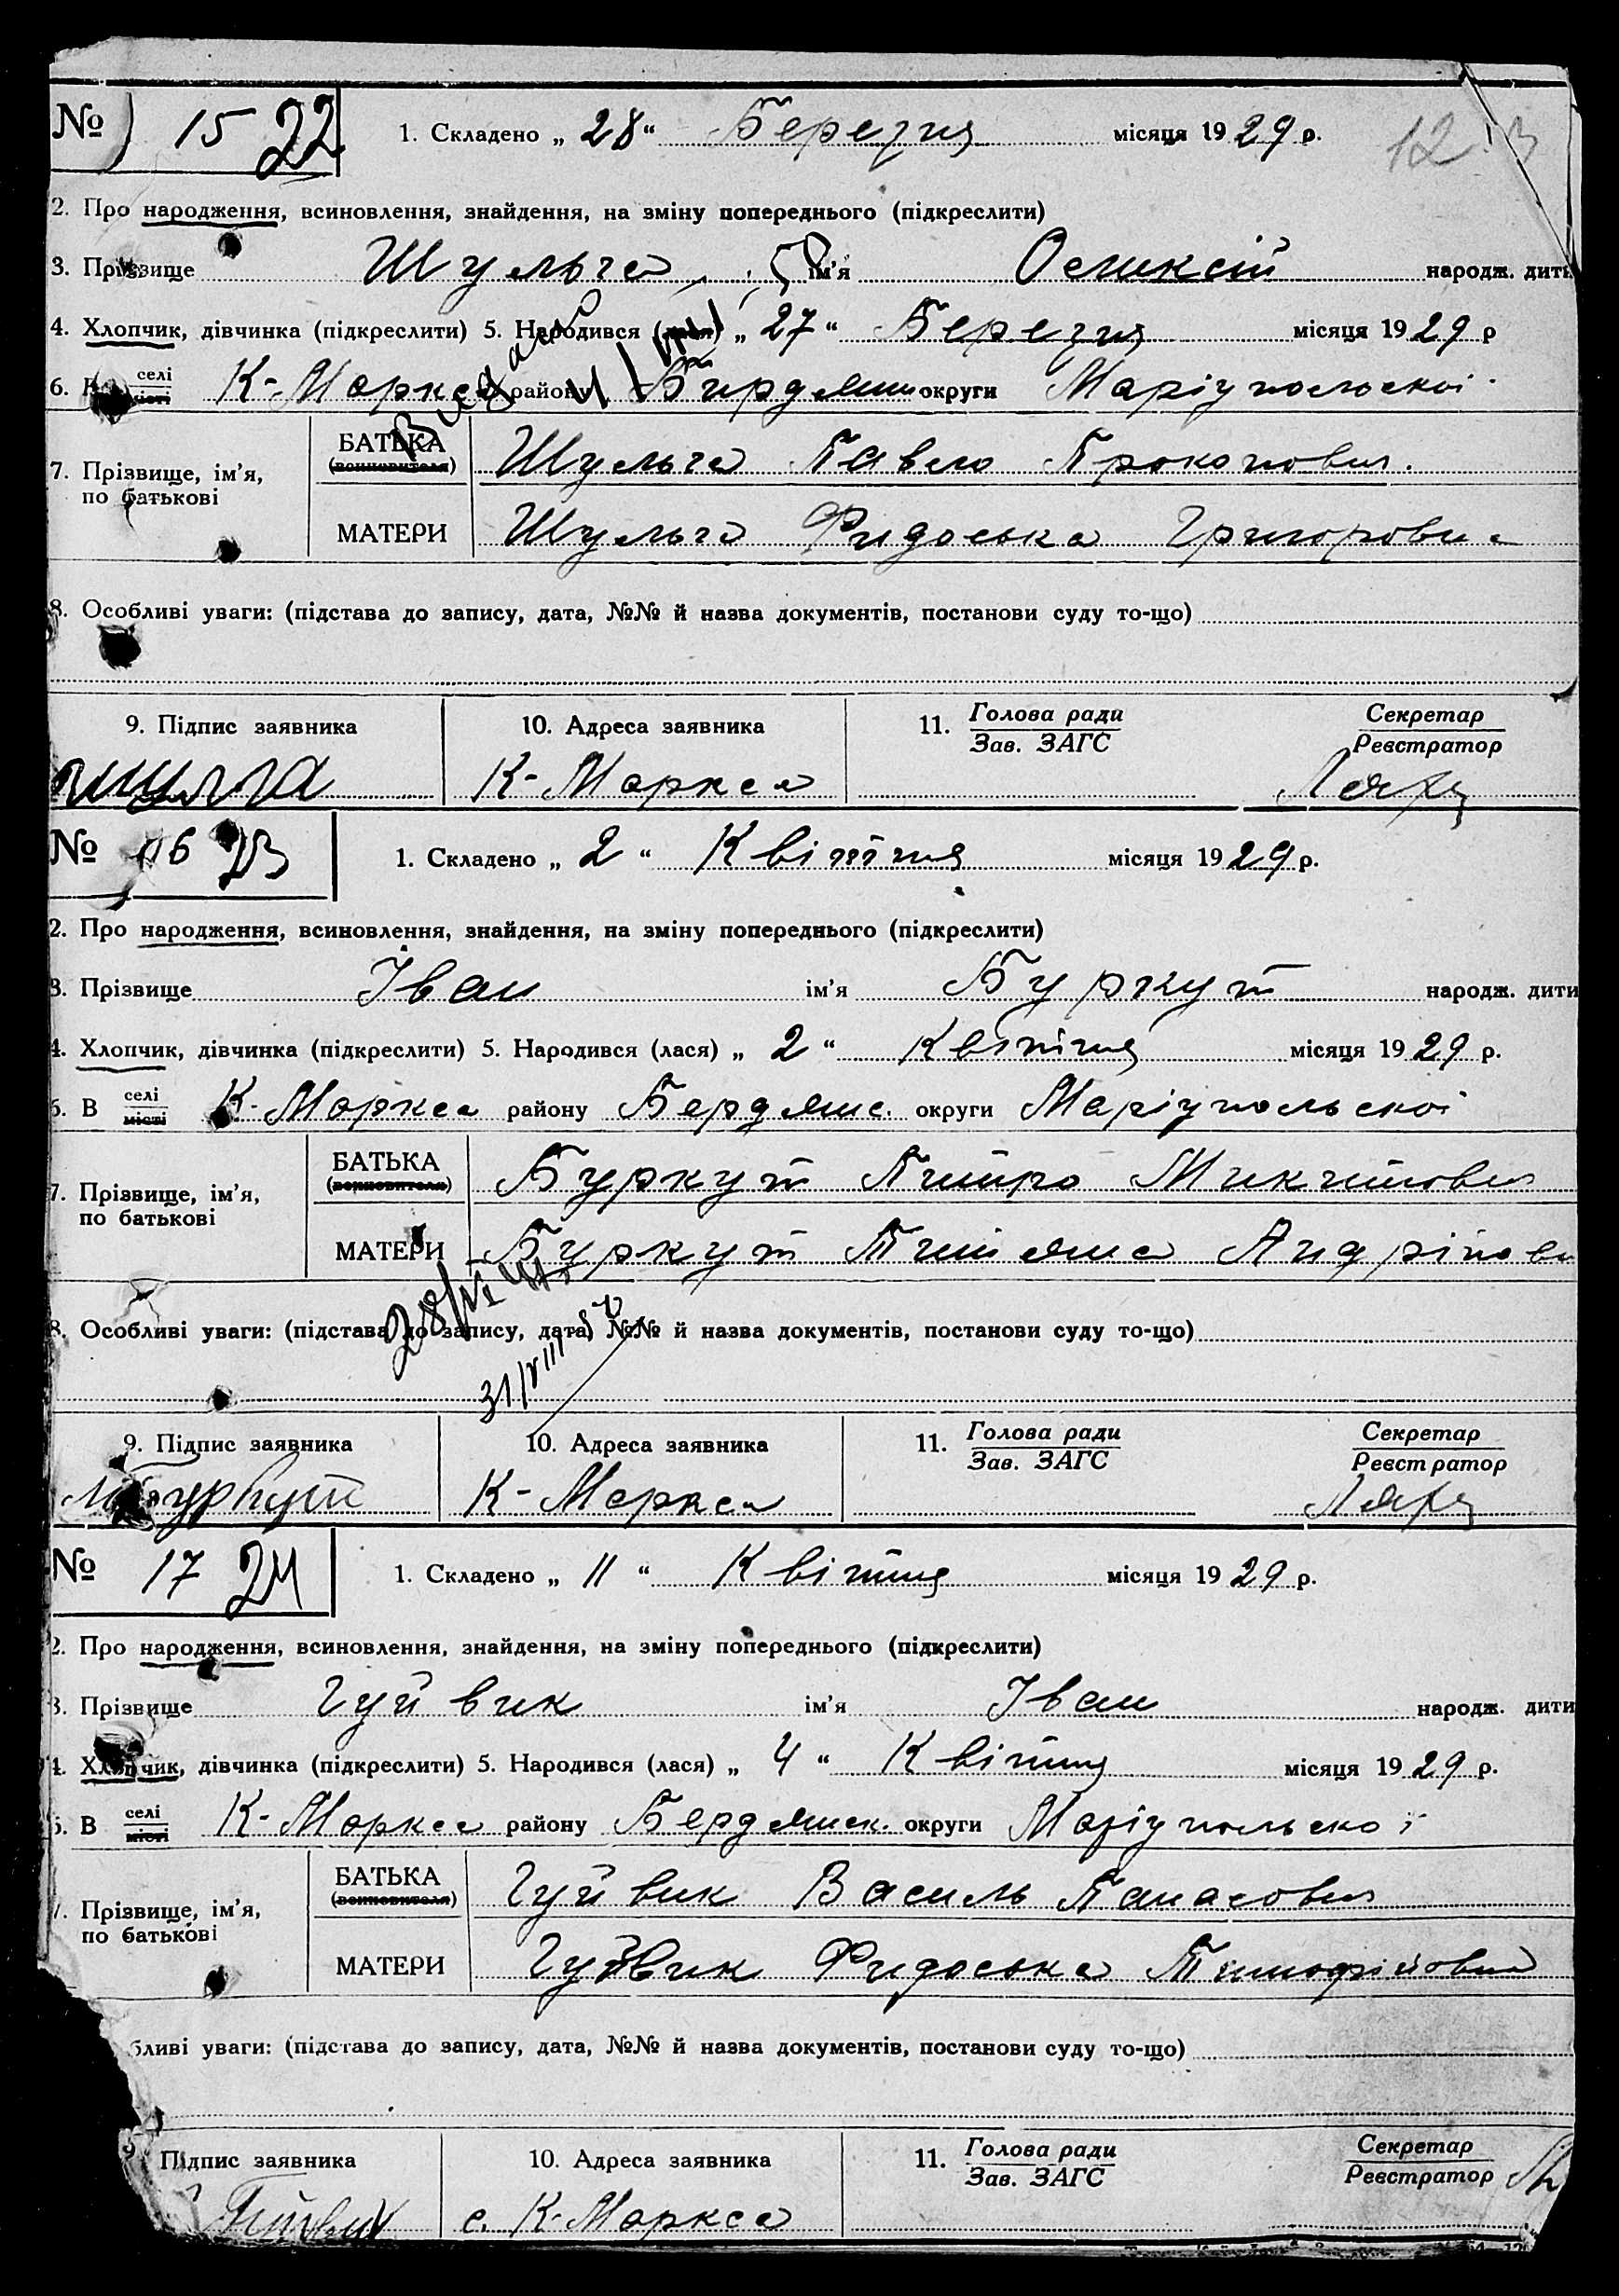 № 15 22 1. Складено „ 28 “ Березня місяця 1929 р. 12
2. Про народження, всиновлення, знайдення, на зміну попереднього (підкреслити)
3. Прізвище Шульга ім'я Олексій народж. дити
4. Хлопчик, дівчинка (підкреслити) 5. Народився „ 27 “ Березня місяця 1929 р
6. В селі К-Маркса району Бердянш округи Маріупольської
БАТЬКА
(всиновителя) Шульга Павло Прокопович.
7. Прізвище, ім'я,
по батькові
МАТЕРИ Шульга Фидоська Григоровна
8. Особливі уваги: (підстава до запису, дата, №№ й назва документів, постанови суду то-що)
9. Підпис заявника 10. Адреса заявника 11. Голова ради Секретар
Зав. ЗАГС Реєстратор
К-Маркса
№ 16 23 1. Складено „ 2 “ Квітня місяця 1929 р.
2. Про народження, всиновлення, знайдення, на зміну попереднього (підкреслити)
3. Прізвище Іван ім'я Буркут народж. дити
4. Хлопчик, дівчинка (підкреслити) 5. Народився (лася) „ 2 “ Квітня місяця 1929 р.
6. В селі місті К-Маркса району Бердянс. округи Маріупольської
БАТЬКА
(всиновителя) Буркут Питро Микитович
7. Прізвище, ім'я,
по батькові
МАТЕРИ Буркут Титяна Андріпов
28/VI
8. Особливі уваги: (підстава до запису, дата, №№ й назва документів, постанови суду то-що)
31/VIII
9. Підпис заявника 10. Адреса заявника 11. Голова ради Секретар
Зав. ЗАГС Реєстратор
Буркут К-Маркса
№ 17 24 1. Складено „ 11 “ Квітня місяця 1929 р.
2. Про народження, всиновлення, знайдення, на зміну попереднього (підкреслити)
3. Прізвище Гуйвик ім'я Іван народж. дити
4. Хлопчик, дівчинка (підкреслити) 5. Народився (лася) „ 4 “ Квітня місяця 1929 р.
6. В селі місті К-Маркса району Бердянск. округи Маріупольської
БАТЬКА
(всиновителя) Гуйвик Василь Панасович
7. Прізвище, ім'я,
по батькові
МАТЕРИ Гуйвик Фидоська Тимофійовна
бливі уваги: (підстава до запису, дата, №№ й назва документів, постанови суду то-що)
9. Підпис заявника 10. Адреса заявника 11. Голова ради Секретар
Зав. ЗАГС Реєстратор
с. К-Маркса